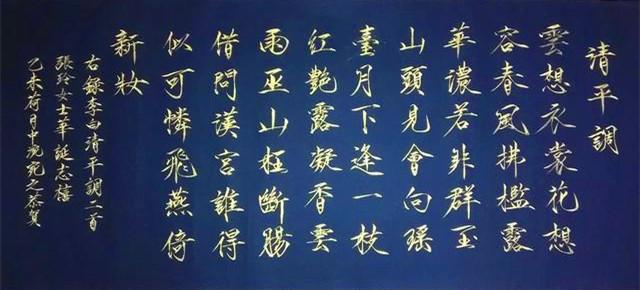 清平調
雲想衣裳花想
容春風拂檻露
華濃若非群玉
山頭見會向瑶
臺月下逢一枝
紅艷露凝香雲
雨巫山枉斷腸
借問漢宮誰得
似可憐飛燕倚
新妝
右錄李白清平調二首
張玲女士華誕志禧
乙未荷月中浣宛之恭賀